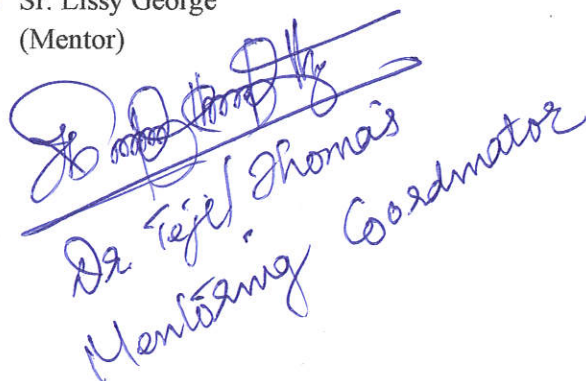 Sr. Lissy George
(Mentor)
Dr. Tejil Thomas
Mentoring Coordinator